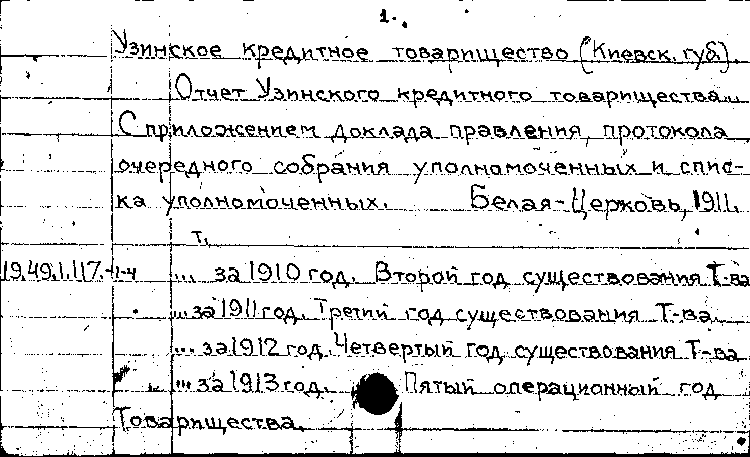 1.
Узинское кредитное товарищество (Киевск. губ).
Отчет Узинского кредитного товарищества...
С приложением доклада правления, протокола
очередного собрания уполномоченных и спис-
ка уполномоченных. Белая-Церковь, 1911.
т.
19.49.1.117.-1-4 ... за 1910 год. Второй год существования Т-ва
... за 1911 год. Третий год существования Т-ва.
... за 1912 год. Четвертый год существования Т-ва
... за 1913 год. Пятый операционный год
Товарищества.